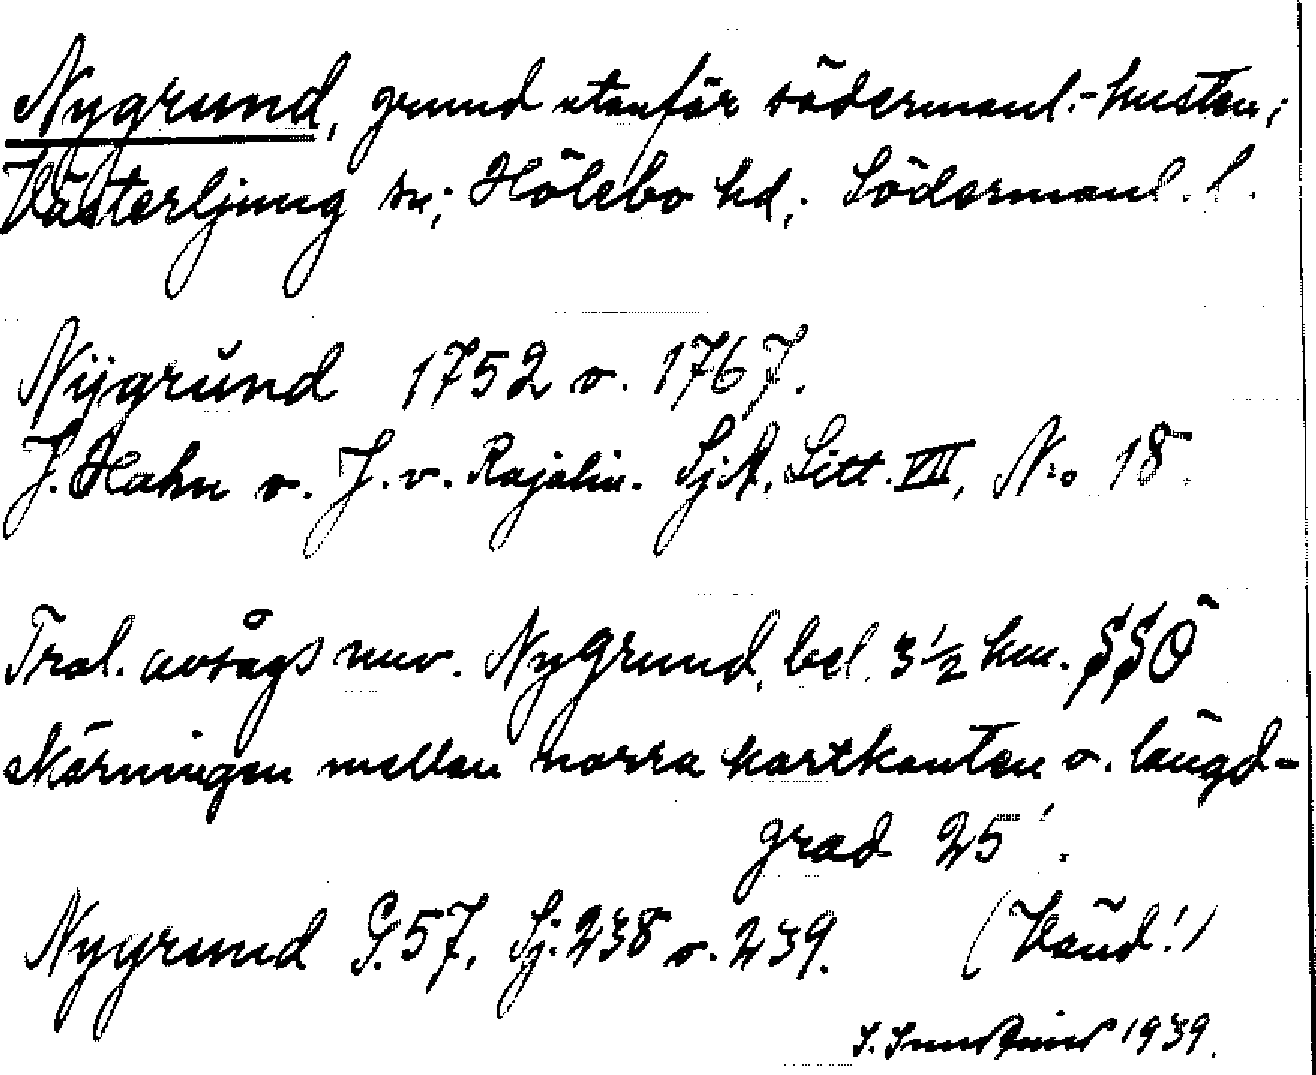 Nygrund, grund utanför södermanl.-kusten,
Västerljung sn; Hölebo hd; Södermanl. l.
Nÿgrŭnd 1752 o. 1767.
J. Hahn o. J. v. Rajalin. SjA, Litt. VII, N:o 18.
Trol. avsågs nuv. Nygrund, bel. 3 1/2 km. SSÖ
skärningen mellan norra kartkanten o. längd-
grad 25'.
Nygrund G. 57, Sj. 238 o. 239. (Vänd!)
1939.